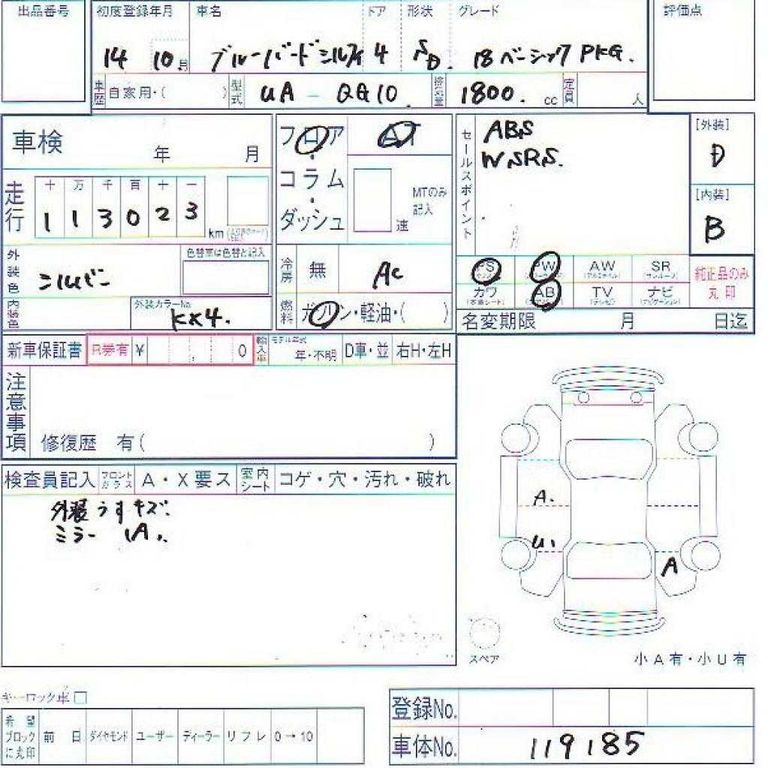 出品番号 初度登録年月 車名 ドア 形状 グレード 評価点
14 10月 ブルーバードシルフィ 4 SD 18ベーシックPKG.
車歴 自家用・( ) 型式 UA - QG10 排気量 1800. cc 定員 人
車検 年 月
フロア・コラム・ダッシュ
AT
MTのみ記入
速
セールスポイント
ABS
WSRS.
[外装]
D
[内装]
B
走行 十 万 千 百 十 一
113023 km
外装色 シルバー
色替車は色替と記入
内装色 外装カラーNo. KX4.
冷房 無 AC
燃料 ガソリン・軽油・( )
PS PW AW SR
カワ AB TV ナビ
純正品のみ丸印
名変期限 月 日迄
新車保証書 R券有 ¥ , 0 輸入車 モデル年式 年・不明 D車・並 右H・左H
注意事項
修復歴 有( )
検査員記入 フロントガラス A・X要ス 室内シート コゲ・穴・汚れ・破れ
外装うすキズ.
ミラー 1A.
A.
U.
A
スペア
小A有・小U有
キーロック車 □
希望ブロックに丸印 前日 ダイヤモンド ユーザー ディーラー リフレ 0→10
登録No.
車体No. 119185